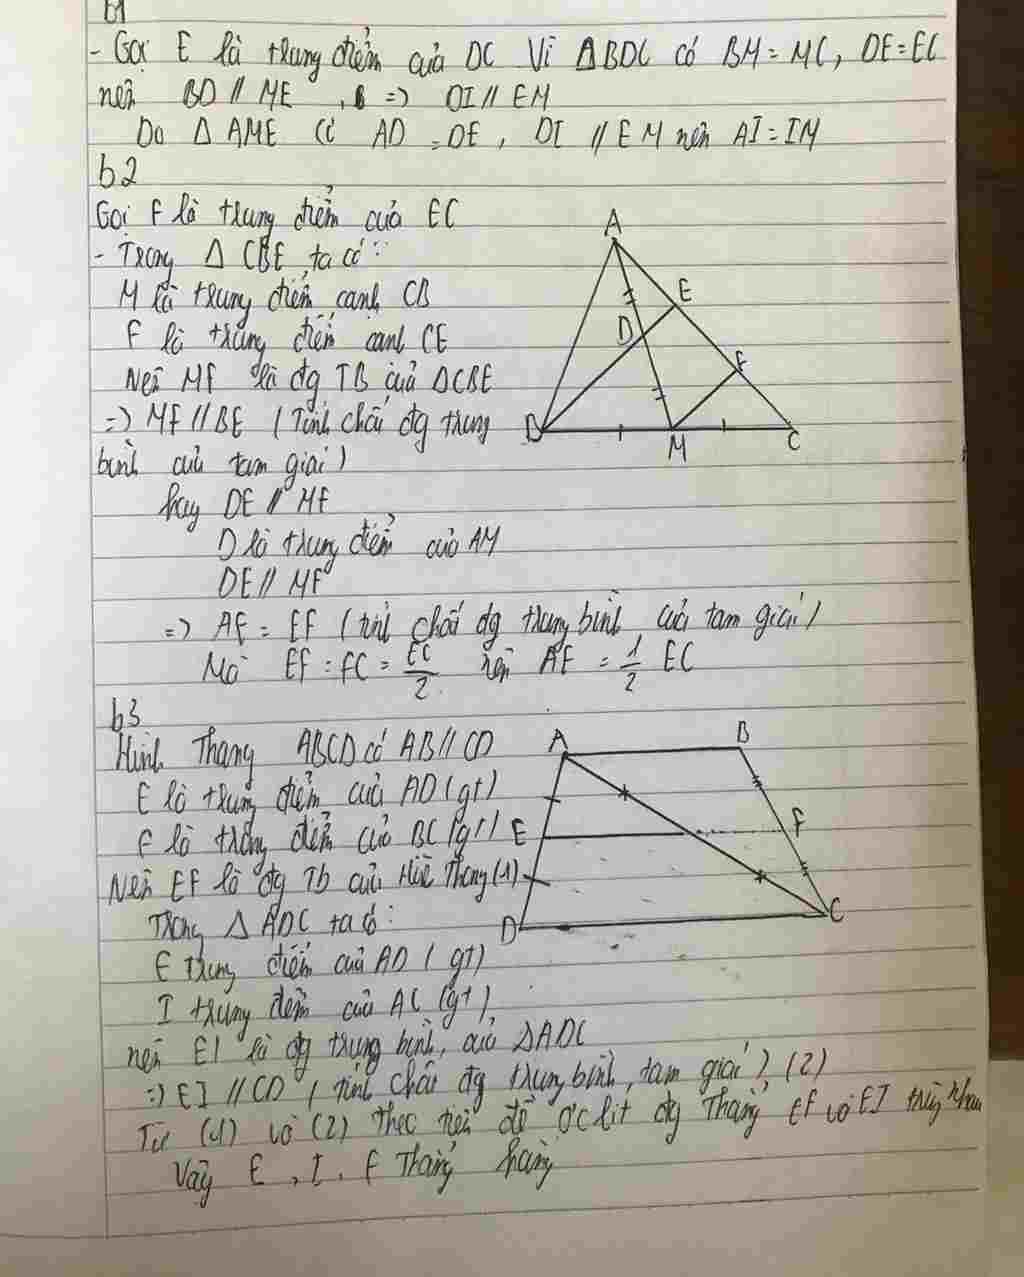 b1
- Gọi E là trung điểm của DC Vì ΔBDC có BM = MC, DE = EC
nên BD // ME, => DI // EM
Do Δ AME có AD = DE, DI // EM nên AI = IM
b2
Gọi F là trung điểm của EC
- Trong Δ CBE ta có :
M là trung điểm cạnh CB
F là trung điểm cạnh CE
Nên MF là đg TB của ΔCBE
=> MF // BE ( Tính chất đg trung
bình của tam giác )
hay DE // MF
D là trung điểm của AM
DE // MF
=> AE = EF ( tính chất đg trung bình của tam giác )
Mà EF = FC = EC/2 nên AE = 1/2 EC
A
E
D
F
B
M
C
b3
Hình Thang ABCD có AB // CD
E là trung điểm của AD (gt)
F là trung điểm của BC (gt)
Nên EF là đg Tb của Hình Thang (1)
Trong Δ ADC ta có :
E trung điểm của AD ( gt)
I trung điểm của AC (gt)
nên EI là đg trung bình của ΔADC
=> EI // CD ( tính chất đg trung bình tam giác ) (2)
Từ (1) và (2) theo tiên đề Ơclit đg Thẳng EF và EI trùng nhau
Vậy E, I, F Thẳng hàng
A
B
E
F
D
C